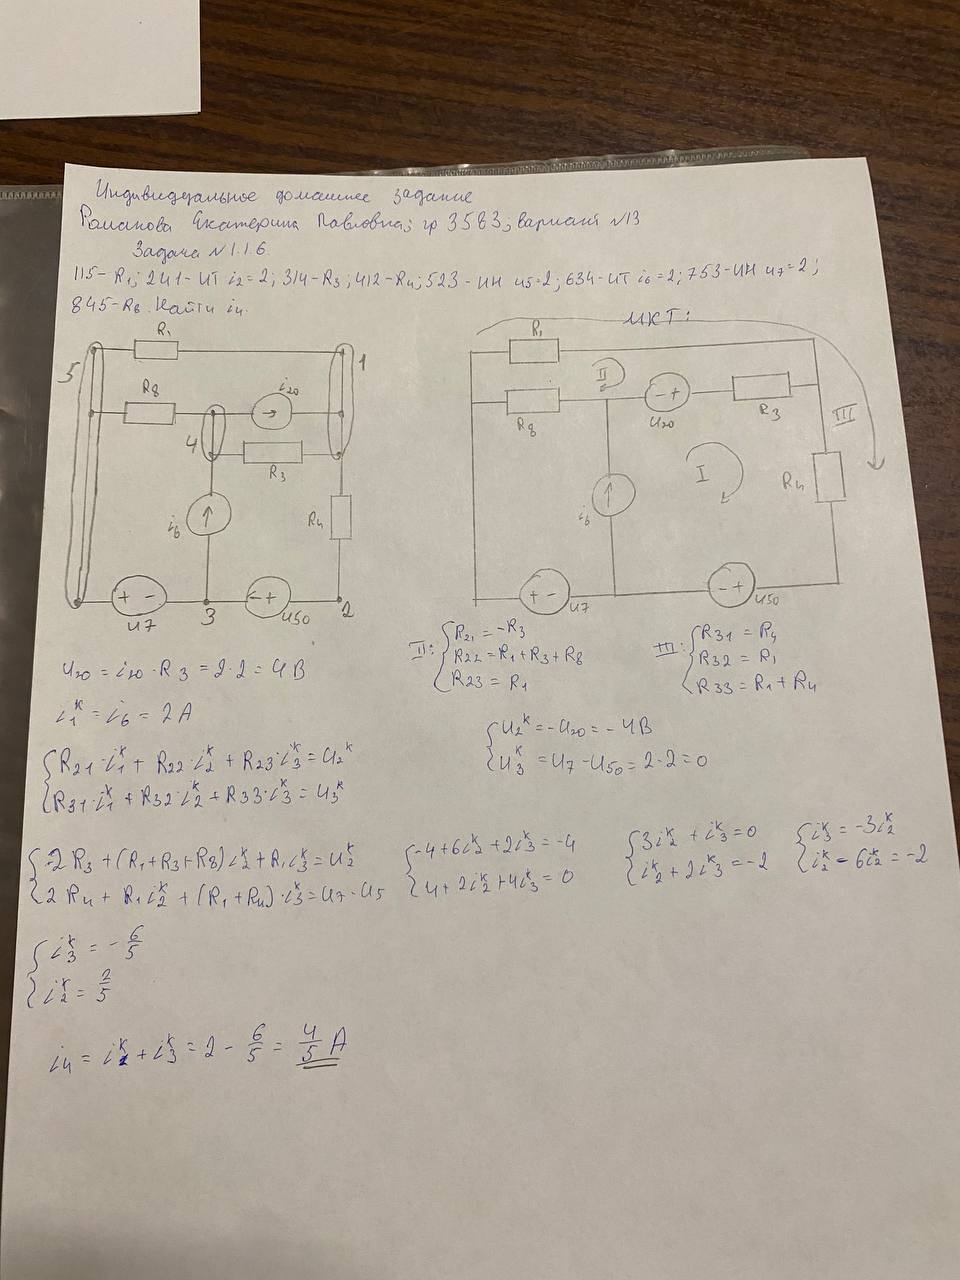 Индивидуальное домашнее задание
Романова Екатерина Павловна; гр 3583; вариант №13
Задача №1.1.6.
115-R₁; 241-ИТ i₂=2; 314-R₃; 412-R₄; 523-ИН u5=2; 634-ИТ i₆=2; 753-ИН u₇=2;
845-R₈. Найти i₄.
МКТ:
R₁
5
1
R8
i₂₀
4
R₃
i₆
R₄
+ -
- +
u7
3
u50
2
R₁
II
R₈
- +
u₂₀
R₃
III
I
i₆
R₄
+ -
u7
- +
u50
u₂₀ = i₂₀·R₃ = 2·2 = 4В
i₁ᵏ = i₆ = 2А
II: { R₂₁ = -R₃
R₂₂ = R₁+R₃+R₈
R₂₃ = R₁
III: { R₃₁ = R₄
R₃₂ = R₁
R₃₃ = R₁+R₄
{ R₂₁·i₁ᵏ + R₂₂·i₂ᵏ + R₂₃·i₃ᵏ = u₂ᵏ
R₃₁·i₁ᵏ + R₃₂·i₂ᵏ + R₃₃·i₃ᵏ = u₃ᵏ
{ u₂ᵏ = -u₂₀ = -4В
u₃ᵏ = u₇ - u₅₀ = 2-2 = 0
{ -2R₃ + (R₁+R₃+R₈)i₂ᵏ + R₁i₃ᵏ = u₂ᵏ
2R₄ + R₁i₂ᵏ + (R₁+R₄)·i₃ᵏ = u₇-u₅
{ -4+6i₂ᵏ+2i₃ᵏ = -4
4+2i₂ᵏ+4i₃ᵏ = 0
{ 3i₂ᵏ + i₃ᵏ = 0
i₂ᵏ + 2i₃ᵏ = -2
{ i₃ᵏ = -3i₂ᵏ
i₂ᵏ - 6i₂ᵏ = -2
{ i₃ᵏ = -6/5
i₂ᵏ = 2/5
i₄ = i₁ᵏ + i₃ᵏ = 2 - 6/5 = 4/5 А